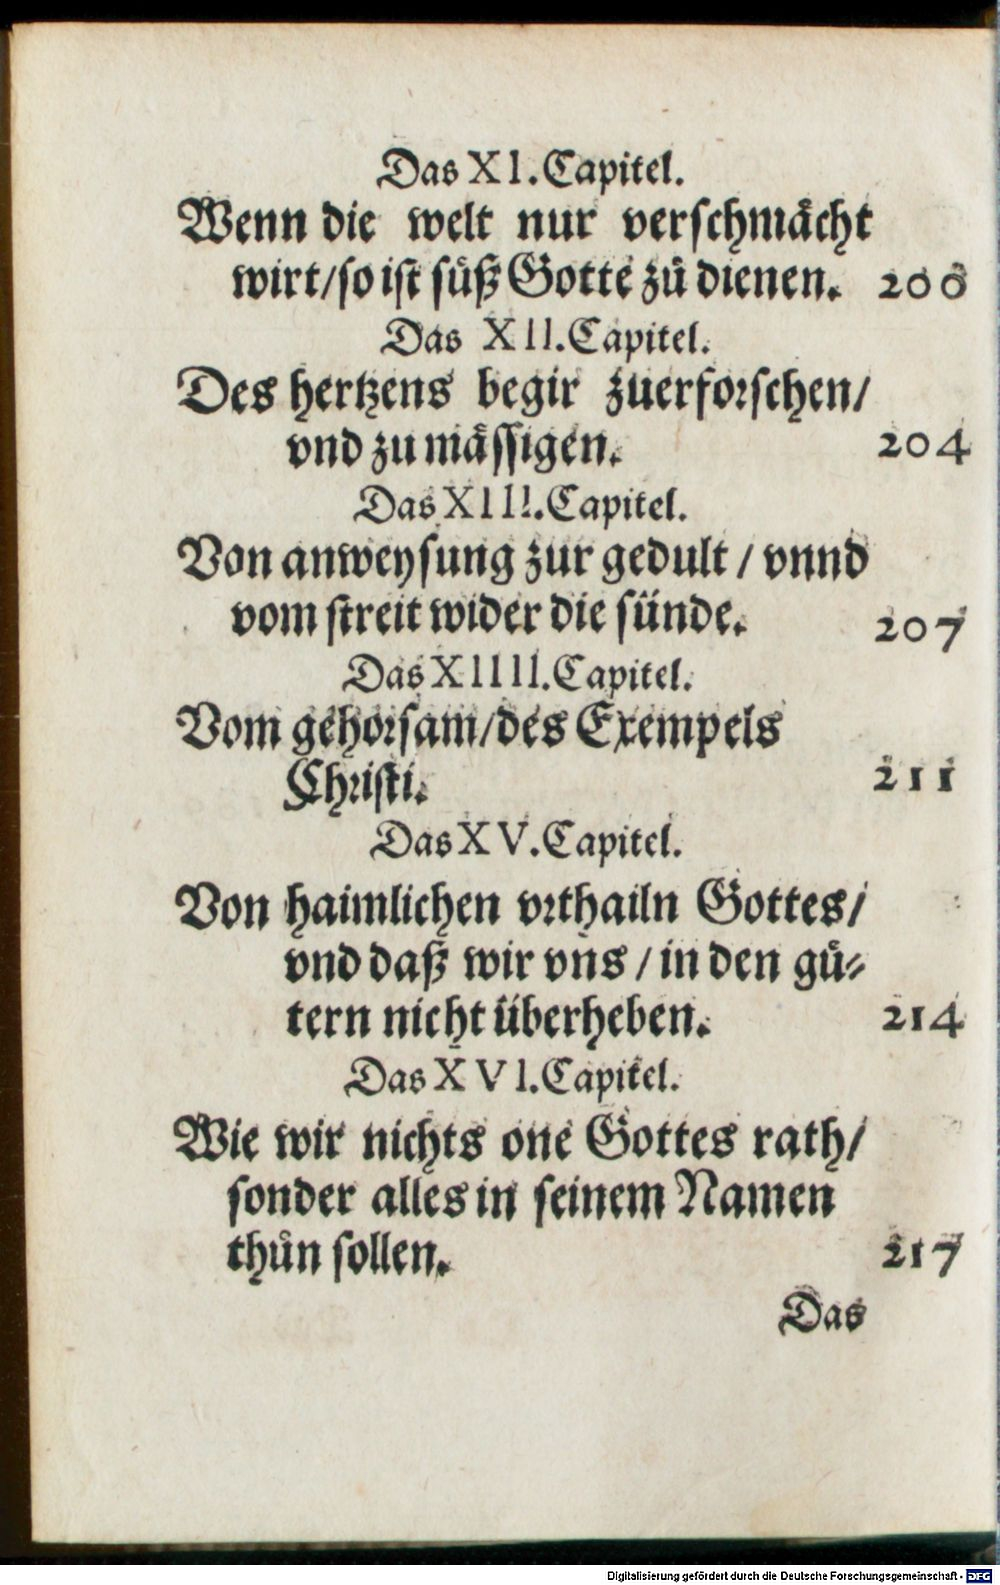 Das XI. Capitel.
Wenn die welt nur verschmächt
wirt/so ist süß Gotte zů dienen. 200
Das XII. Capitel.
Des hertzens begir zuerforschen/
vnd zu mässigen. 204
Das XIII. Capitel.
Von anweysung zur gedult / vnnd
vom streit wider die sünde. 207
Das XIIII. Capitel.
Vom gehorsam/des Exempels
Christi. 211
Das XV. Capitel.
Von haimlichen vrthailn Gottes/
vnd daß wir vns / in den gü-
tern nicht überheben. 214
Das XVI. Capitel.
Wie wir nichts one Gottes rath/
sonder alles in seinem Namen
thůn sollen. 217
Das
Digitalisierung gefördert durch die Deutsche Forschungsgemeinschaft - DFG